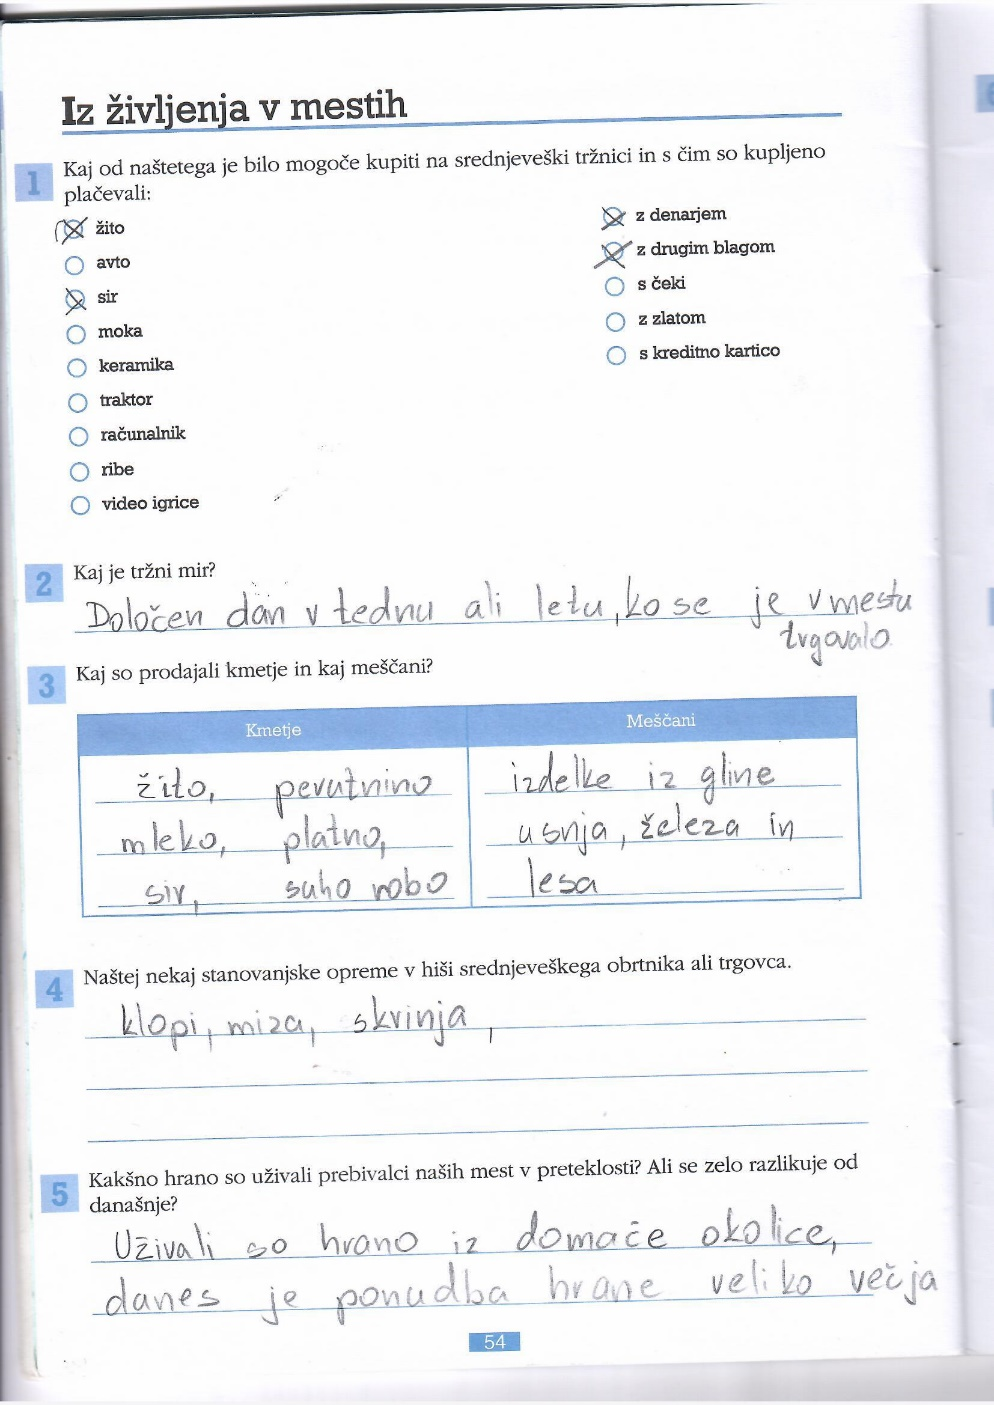 Iz življenja v mestih
1 Kaj od naštetega je bilo mogoče kupiti na srednjeveški tržnici in s čim so kupljeno
plačevali:
žito
avto
sir
moka
keramika
traktor
računalnik
ribe
video igrice
z denarjem
z drugim blagom
s čeki
z zlatom
s kreditno kartico
2 Kaj je tržni mir?
Določen dan v tednu ali letu, ko se je v mestu
trgovalo
3 Kaj so prodajali kmetje in kaj meščani?
Kmetje
Meščani
žito, perutnino
mleko, platno,
sir, suho robo
izdelke iz gline
usnja, železa in
lesa
4 Naštej nekaj stanovanjske opreme v hiši srednjeveškega obrtnika ali trgovca.
klopi, miza, skrinja,
5 Kakšno hrano so uživali prebivalci naših mest v preteklosti? Ali se zelo razlikuje od
današnje?
Uživali so hrano iz domače okolice,
danes je ponudba hrane veliko večja
54